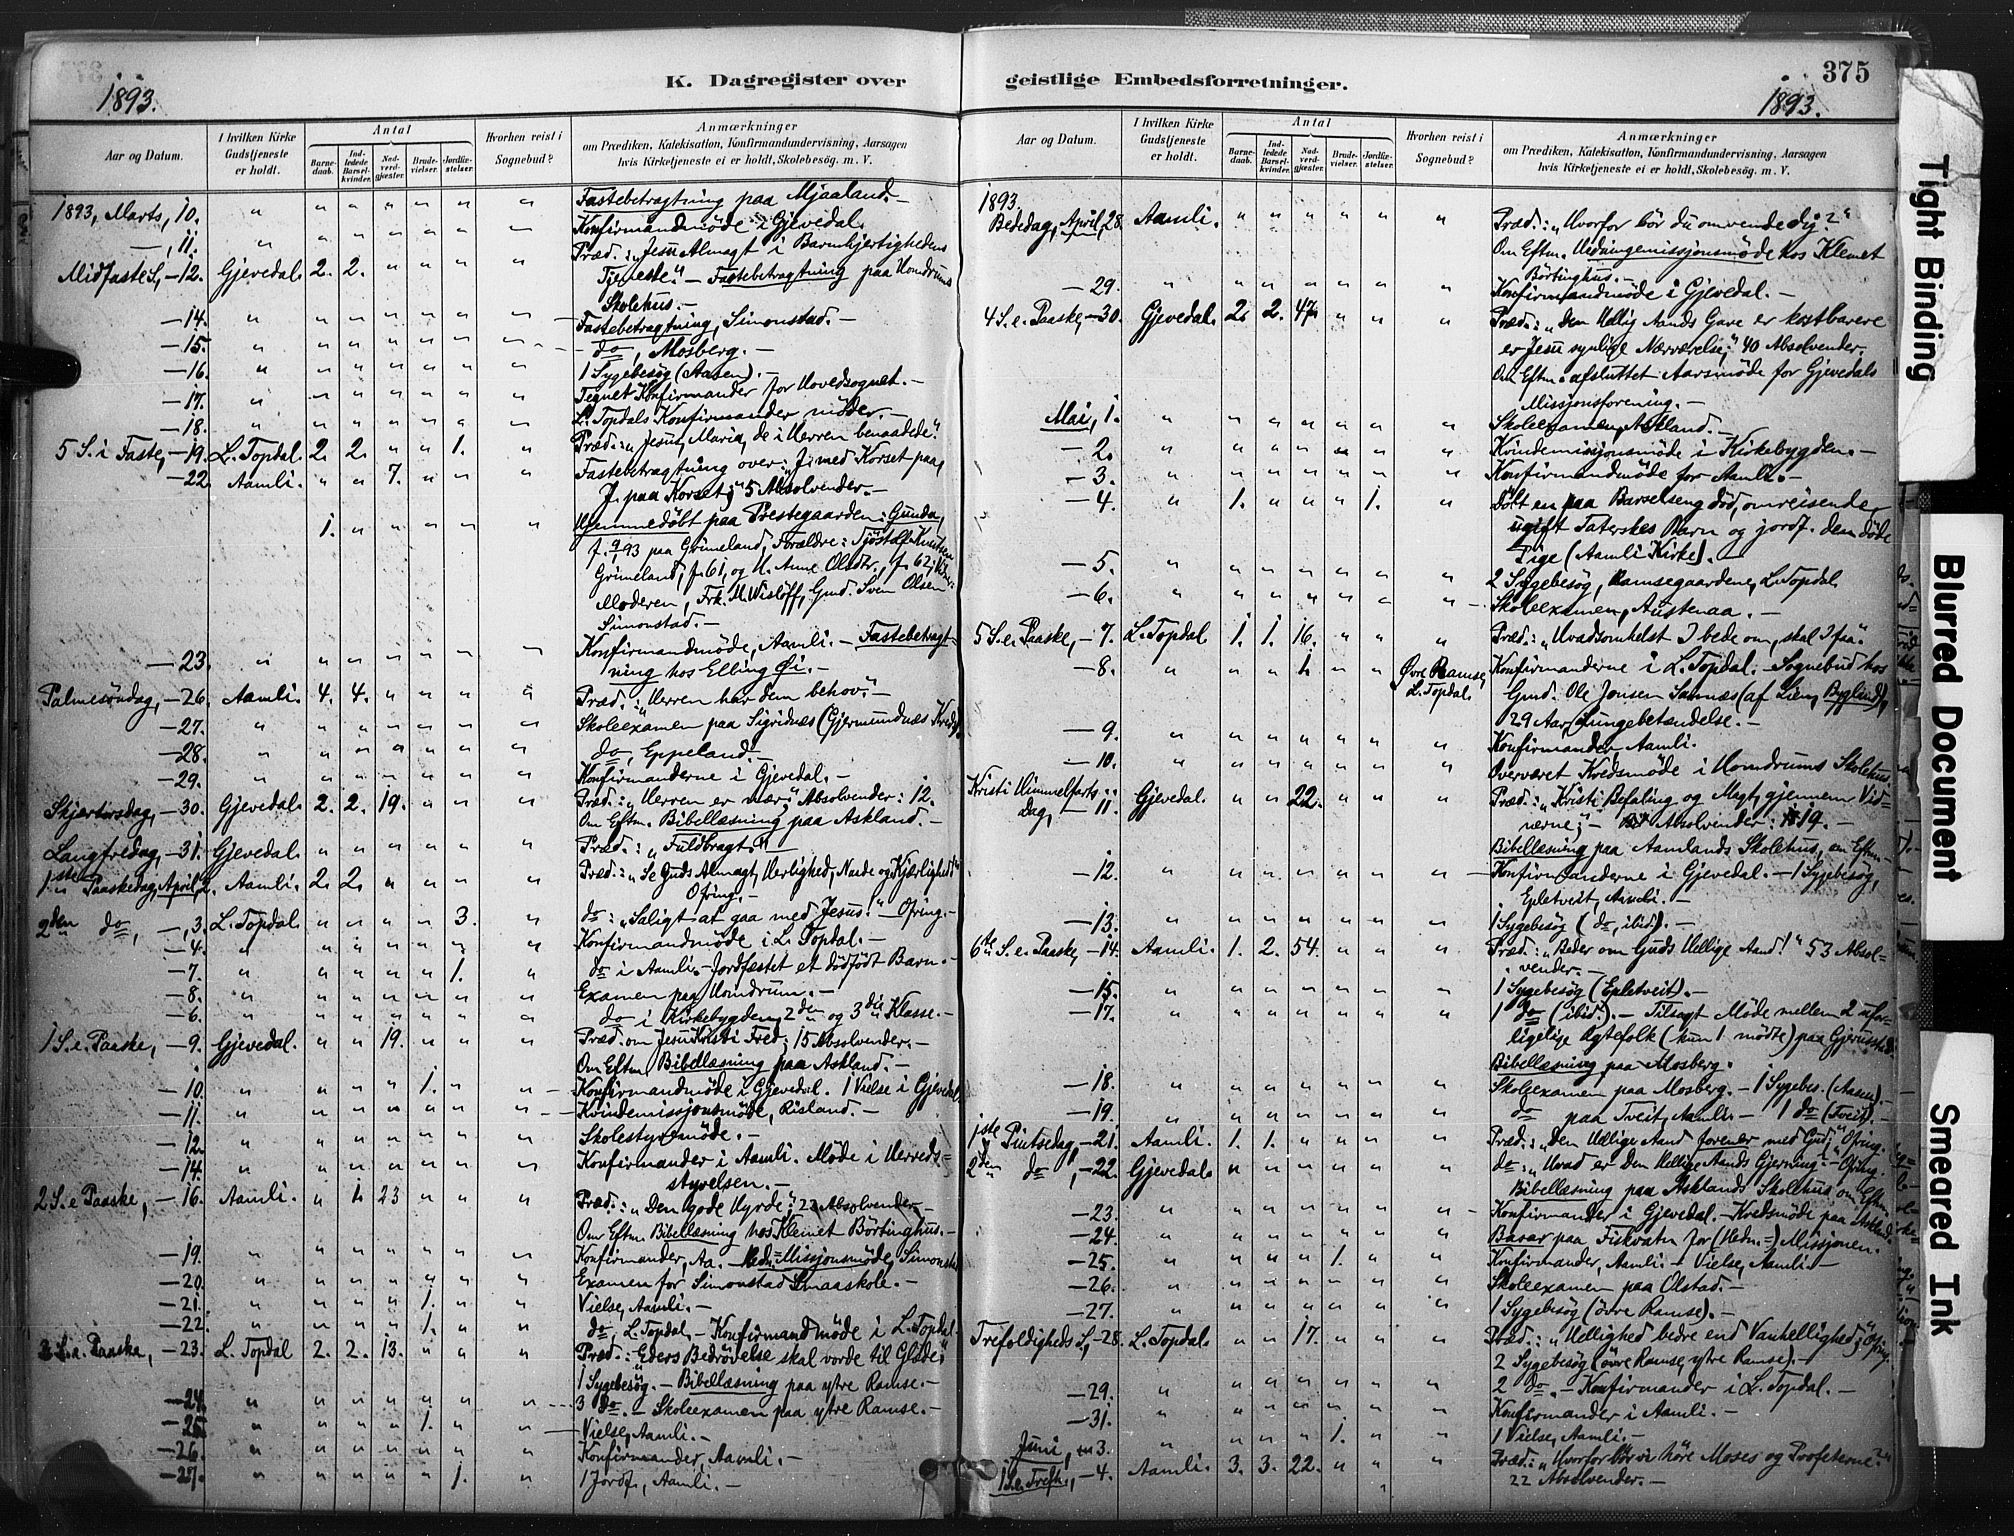 K. Dagregister over
1893.
Aar og Datum.
I hvilken Kirke Gudstjeneste er holdt.
Antal
Barnedaab.
Indledede Barselkvinder.
Nadverdgjæster.
Brudevielser.
Jordfæstelser.
Hvorhen reist i Sognebud?
Anmærkninger
om Prædiken, Katekisation, Konfirmandundervisning, Aarsagen
hvis Kirketjeneste ei er holdt, Skolebesög. m. V.
1893, Marts, 10. " " " " " " " Fastebetragtning paa Mjaaland.-
—, 11. " " " " " " " Konfirmandmøde i Gjevedal.
Midfaste S., -12. Gjevedal. 2. 2. " " " " Præd.: "Jesu Almagt i Barmhjertighedens
Tjeneste." - Fastebetragtning paa Homdrums
Skolehus.-
-14. " " " " " " " Fastebetragtning, Simonstad.-
-15. " " " " " " " do, Mosberg.-
-16. " " " " " " " 1 Sygebesøg (Aasen).-
-17. " " " " " " " Tegnet Konfirmander for Hovedsognet.-
-18. " " " " " " " L. Topdals Konfirmander møder.-
5 S. i Faste, -19. L. Topdal. 2. 2. " " 1. " Præd.: "Jesus, Maria, de i Herren benaadede."
-22. Aamli. " " 7. " " " Fastebetragtning over: "J. med Korset paa,
J. paa Korset;" 5 Absolvender.-
1. " " " " " Hjemmedøbt paa Prestegaarden: Gunda,
f. 93 paa Grimeland, Forældre: Tjøstolf Knutsen
Grimeland, f. 61, og H. Anne Olsdtr., f. 62;
Moderen, Frk. H. Wisløff, Gmd. Sven Olsen
Simonstad.-
-23. " " " " " " " Konfirmandmøde, Aamli. - Fastebetragt-
ning hos Elling Øi.-
Palmesøndag, -26. Aamli. 4. 4. " " " " Præd.: "Herren har dem behov."-
-27. " " " " " " " Skoleexamen paa Sigridnæs (Gjermundnæs Kreds).
-28. " " " " " " " do, Eppeland.-
-29. " " " " " " " Konfirmanderne i Gjevedal.-
Skjærtorsdag, -30. Gjevedal. 2. 2. 19. " " " Præd.: "Herren er nær;" Absolvender: 12.
Om Eftm. Bibellæsning paa Askland.-
Langfredag, -31. Gjevedal. " " " " " " Præd.: "Fuldbragt."
1ste Paaskedag, April, 2. Aamli. 2. 2. " " " " Præd.: "Se Guds Almagt, Herlighed, Naade og Kjærlighed!"
Ofring.-
2den do, -, 3. L. Topdal. " " " " 3. " do: "Saligt at gaa med Jesus!" - Ofring.-
-4. " " " " " " " Konfirmandmøde i L. Topdal.-
-7. " " " " " 1. " do i Aamli.- Jordfæstet et dødfødt Barn.-
-8. " " " " " " " Examen paa Homdrum.-
-6. " " " " " " " do i Kirkebygden, 2den og 3die Klasse.-
1 S. e. Paaske, -9. Gjevedal. " " 19. " " " Præd. om Jesu Kristi Fred; 15 Absolvender.-
Om Eftm. Bibellæsning paa Askland.-
-10. " " " " 1. " " Konfirmandmøde i Gjevedal. 1 Vielse i Gjevedal.
-11. " " " " " " " Kvindemissjonsmøde, Risland.-
-12. " " " " " " " Skolestyremøde.-
-14. " " " " " " " Konfirmander i Aamli. Møde i Herreds-
styrelsen.-
2 S. e. Paaske, -16. Aamli. " 1. 23 " " " Præd.: "Den gode Hyrde;" 23 Absolvender.-
Om Eftm. Bibellæsning hos Klemet Børtinghus.-
-19. " " " " " " " Konfirmander, Aa. - Hedn.=Missjonsmøde, Simonstad
-20. " " " " " " " Examen for Simonstad Smaaskole.-
-21. " " " " 1. " " Vielse, Aamli.-
-22. " " " " 1. " " do, L. Topdal. - Konfirmandmøde i L. Topdal.
3 S. e. Paaske, -23. L. Topdal 2. 2. 13. " " " Præd.: Eders Bedrøvelse skal vorde til Glæde;"
1 Sygebesøg.- Bibellæsning paa ytre Ramse.-
-24. " " " " " " " 3 do. - Skoleexamen paa ytre Ramse.-
-25. " " " " 1. " " Vielse, Aamli.-
-26. " " " " " " " Konfirmander, Aamli.-
-27. " " " " " 1. " 1 Jordf., Aamli.-
geistlige Embedsforretninger.
375
1893.
Aar og Datum.
I hvilken Kirke Gudstjeneste er holdt.
Antal
Barnedaab.
Indledede Barselkvinder.
Nadverdgjæster.
Brudevielser.
Jordfæstelser.
Hvorhen reist i Sognebud?
Anmærkninger
om Prædiken, Katekisation, Konfirmandundervisning, Aarsagen
hvis Kirketjeneste ei er holdt, Skolebesög. m. V.
1893.
Bededag, April, 28. Aamli. " " " " " " Præd.: "Hvorfor bør du omvende dig?"
Om Eftm. Hedningemissjonsmøde hos Klemet
Børtinghus.-
-29. " " " " " " " Konfirmandmøde i Gjevedal.-
4 S. e. Paaske, -30. Gjevedal. 2. 2. 47. " " " Præd.: "Den Hellig Aands Gave er kostbarere
er Jesu synlige Nærværelse;" 40 Absolvender.
Om Eftm. afsluttet Aarsmøde for Gjevedals
Missjonsforening.-
Mai, 1. " " " " " " " Skoleexamen, Askland.-
-2. " " " " " " " Kvindemissjonsmøde i Kirkebygden.-
-3. " " " " " " " Konfirmandmøde for Aamli.-
-4. " 1. " " " 1. " Døbt en paa Barselseng død, omreisende
ugift Taterskes Barn og jordf. den døde
Pige (Aamli Kirke).
-5. " " " " " " " 2 Sygebesøg, Ramsegaardene, L. Topdal
-6. " " " " " " " Skoleexamen, Austenaa.-
5 S. e. Paaske, -7. L. Topdal 1. 1. 16. " " " Præd.: "Hvadsomhelst I bede om, skal I faa."
-8. " " " 1. " " Øvre Ramse, L. Topdal. Konfirmanderne i L. Topdal.- Sognebud hos
Gmd. Ole Jonsen Sannæs (af Lien, Bygland),
29 Aar, Lungebetændelse.-
-9. " " " " " " " Konfirmander, Aamli.
-10. " " " " " " " Overværet Kredsmøde i Homdrums Skolehus
Kristi Himmelfarts-
Dag, -11. Gjevedal. " " 22. " " " Præd.: "Kristi Befaling og Magt, gjennem Vid-
nerne;" - Absolvender: 19.-
Bibellæsning paa Aamlands Skolehus, om Eftm.-
-12. " " " " " " " Konfirmanderne i Gjevedal.- 1 Sygebesøg,
Epletveit, Aamli.-
-13. " " " " " " " 1 Sygebesøg (do, ibid).-
6te S. e. Paaske, -14. Aamli. 1. 2. 54. " " " Præd.: "Beder om Guds Hellige Aand!" 53 Absol-
vender.-
-15. " " " " " " " 1 Sygebesøg (Epletveit).-
-17. " " " " " " " 1 do (ibid.).- Tilsagt Møde mellem 2 ufor-
ligelige Ægtefolk (kun 1 mødte) paa Gjerustad.
Bibellæsning paa Mosberg.
-18. " " " " " " " Skoleexamen paa Mosberg.- 1 Sygebes. (Aasen).-
-19. " " " " " " " do paa Tveit, Aamli.- 1 do (Tveit).-
1ste Pintsedag, -21. Aamli. 1. 1. " " " " Præd.: "Den Hellige Aand forener med Gud;" Ofring.
2den do, -22. Gjevedal. " " " " " " do: "Hvad er Den Hellige Aands Gjerning".- Ofring.
Bibellæsning paa Asklands Skolehus om Eftm.
-23. " " " " " " " Konfirmander i Gjevedal.- Kredsmøde paa Askland.
-24. " " " " " " " Basar paa Fiskvaten for (Hedn.=) Missjonen.-
-25. " " " " 1. " " Konfirmander, Aamli.- Vielse, Aamli.-
-26. " " " " " " " Skoleexamen paa Olstad.-
-27. " " " " " " " 1 Sygebesøg (øvre Ramse).-
Trefoldigheds S., -28. L. Topdal. " " 17. " " " Præd.: "Hellighed bedre end Vanhellighed;" Ofring.
2 Sygebesøg (øvre Ramse, ytre Ramse).-
-29. " " " " " " " 2 do.- Konfirmander i L. Topdal.-
-31. " " " " " " " Konfirmander i Aamli.-
Juni, 3. " " " " 1. " " 1 Vielse, Aamli.-
1 S. e. Tref., -4. Aamli. 3. 3. 22. " " " Præd.: "Hvorfor bør vi høre Moses og Profeterne?"
22 Absolvender.-
Tight Binding
Blurred Document
Smeared Ink